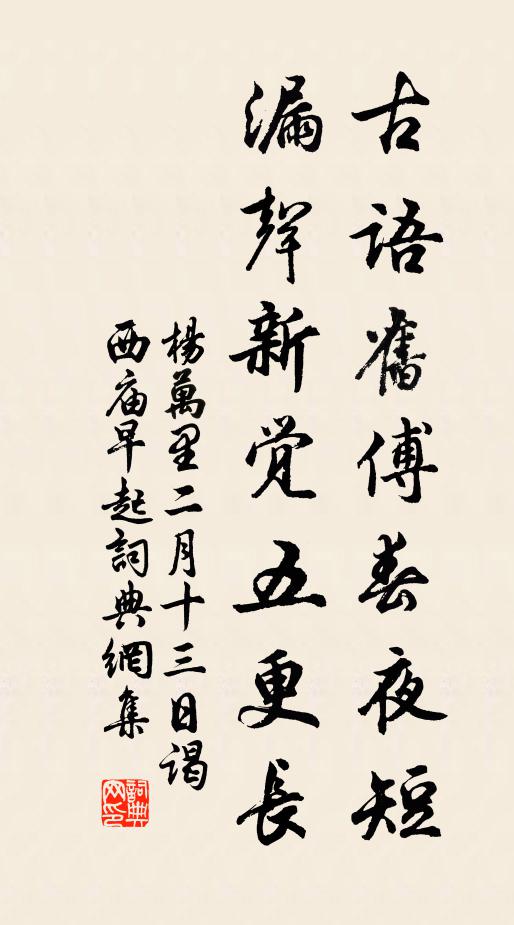 古語舊傳春夜短
漏聲新覚五更長
楊萬里二月十三日謁
西庙早起詞典網集
詞典网印